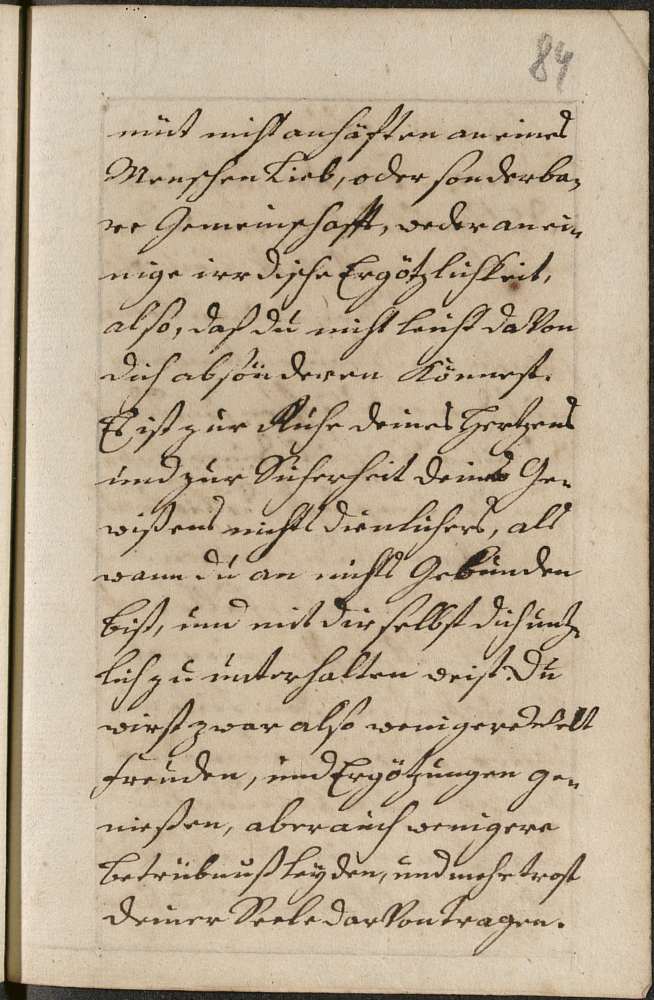 84
müt nicht anhäfften an eines
Menschen Lieb, oder sonderba-
re Gemeinschafft, weder an ei-
nige irrdische Ergötzlichkeit,
also, daß du nicht leicht davon
dich absönderen könnest.
Es ist zur Ruhe deines Hertzens
und zur Sicherheit deines Ge-
wißens nichts dienlichers, als
wann du an nichts Gebunden
bist, und mit dir selbst dich nutz-
lich zu unterhalten weist. Du
wirst zwar also wenigere Welt
freuden, und Ergötzungen ge-
nießen, aber auch wenigere
betrübnuß leyden, und mehr trost
deiner Seele darvon tragen.